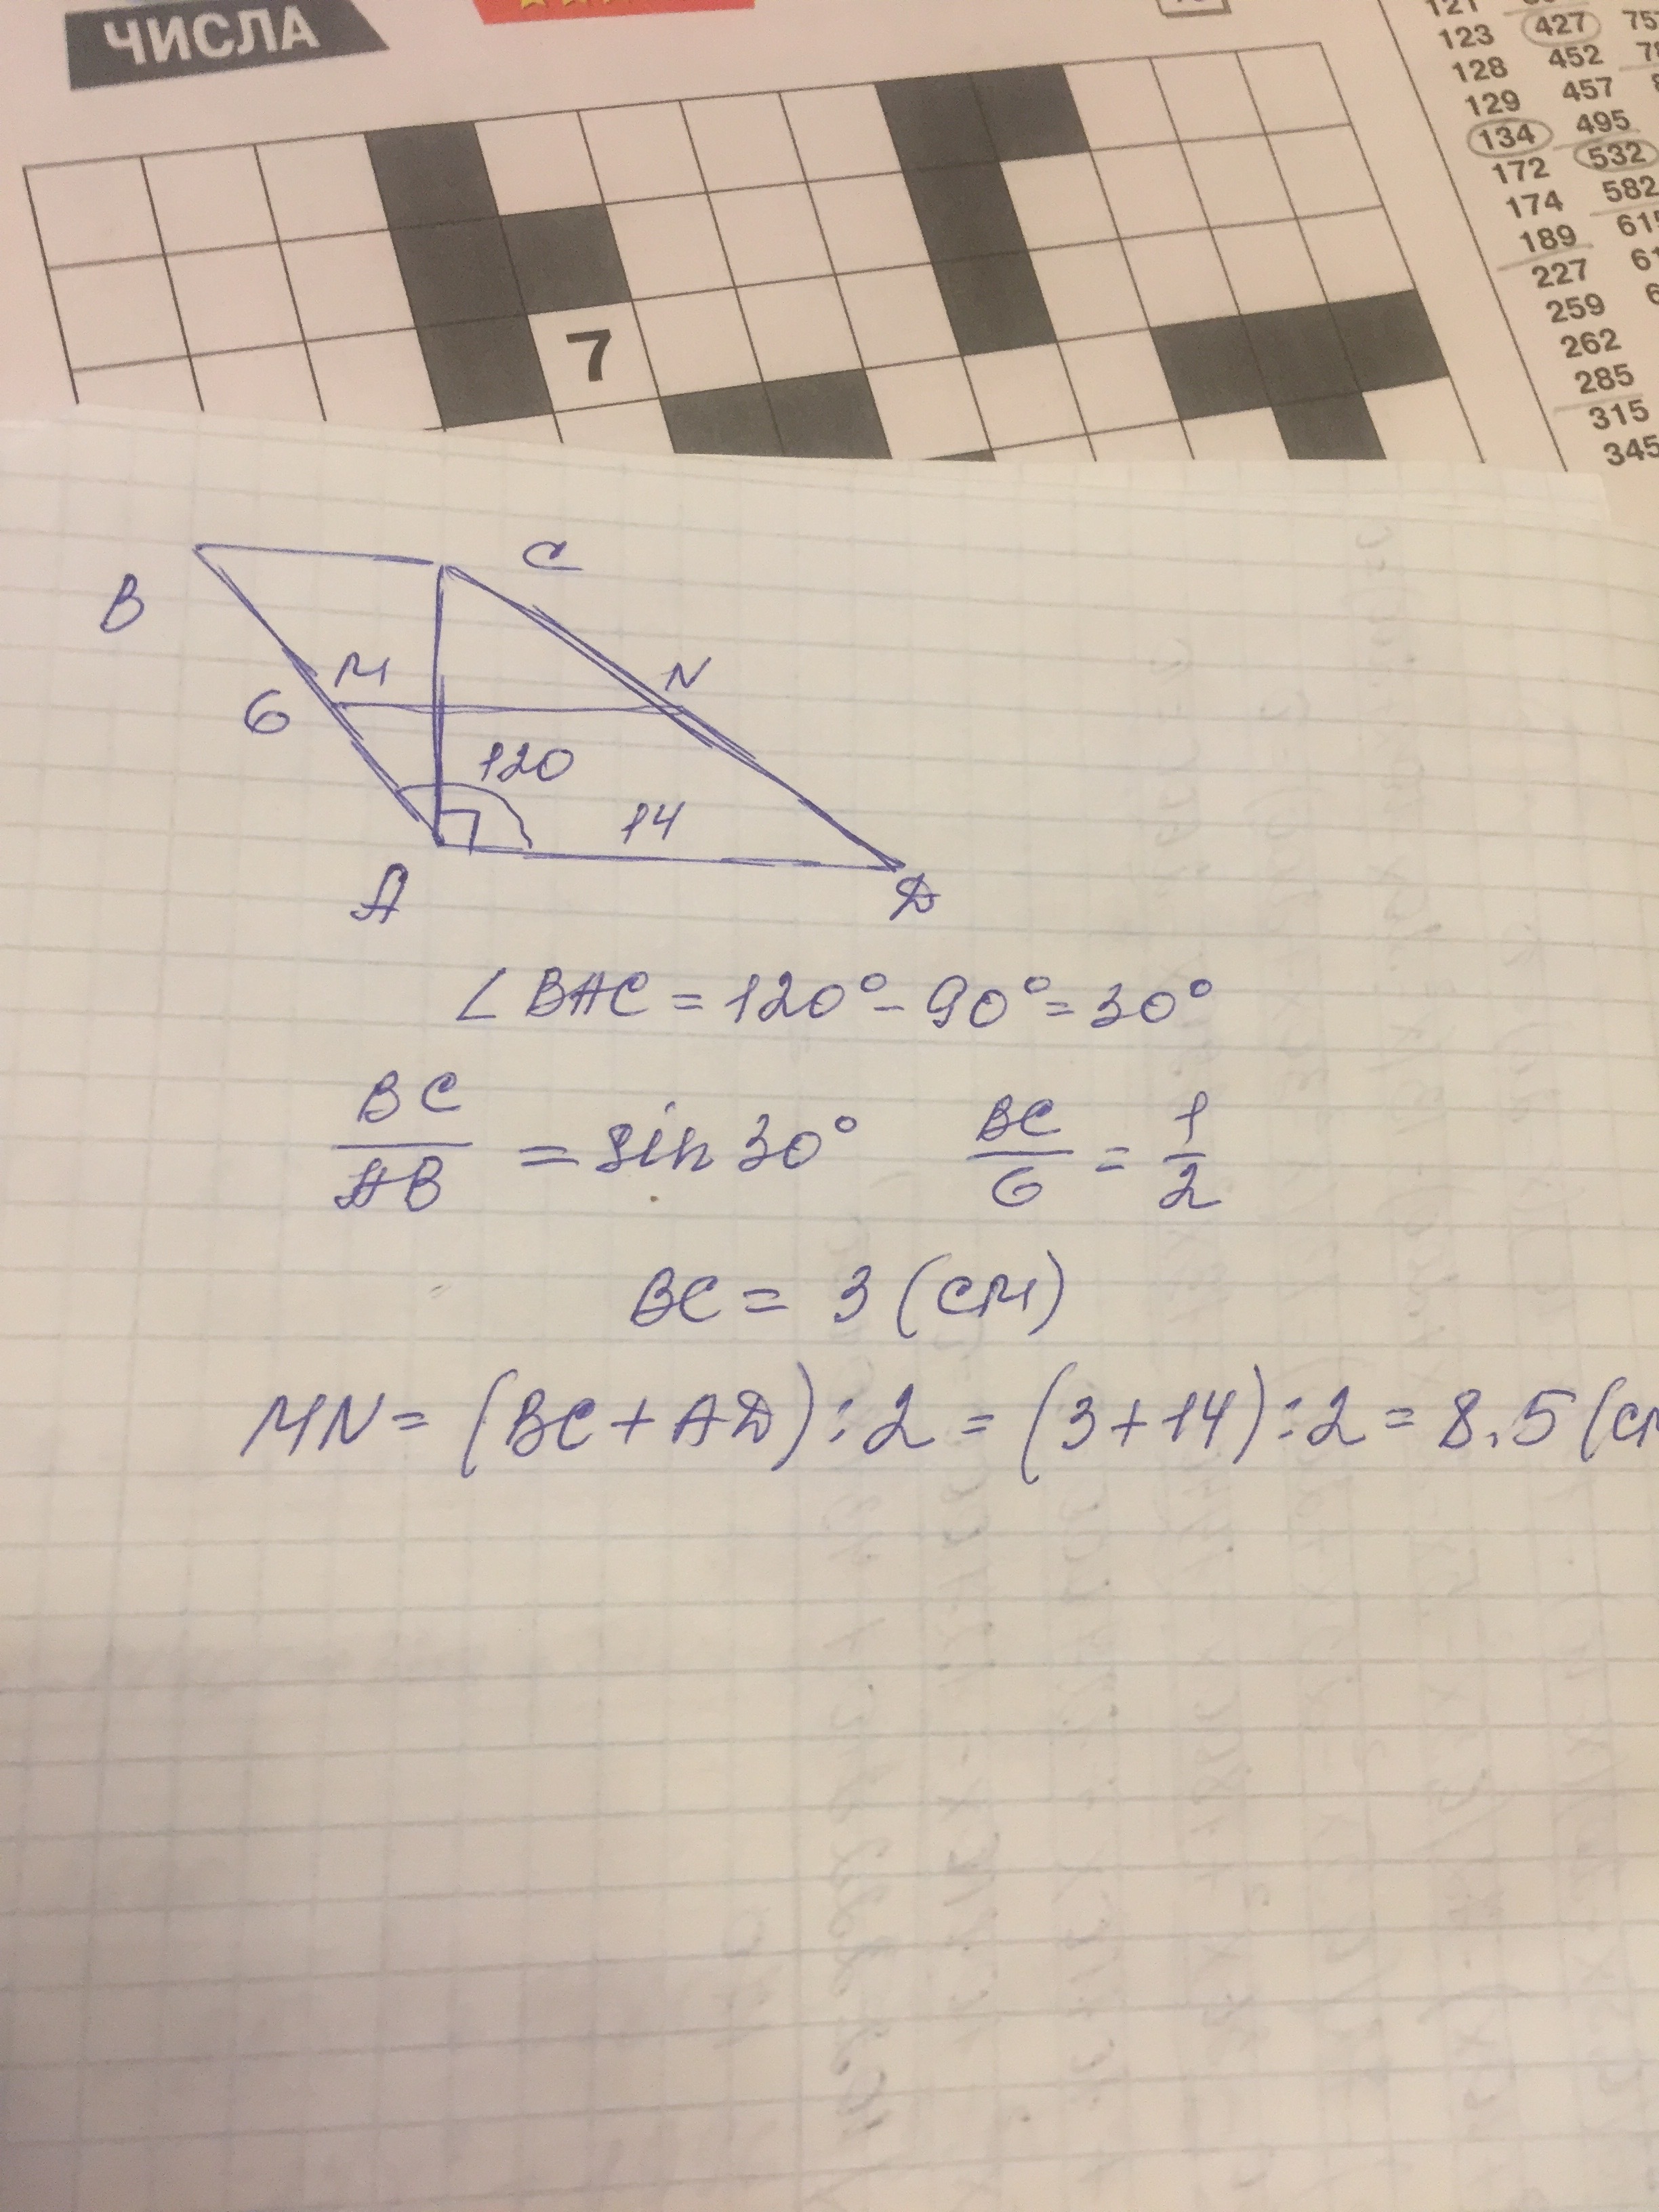 ЧИСЛА
123 427
128 452
129 457
134 495
172 532
174 582
189
227
259
262
285
315
345
7
B C
M N
6
120
14
A D
∠BAC = 120° - 90° = 30°
BC/AB = sin 30° BC/6 = 1/2
BC = 3 (см)
MN = (BC + AD) : 2 = (3 + 14) : 2 = 8,5 (см